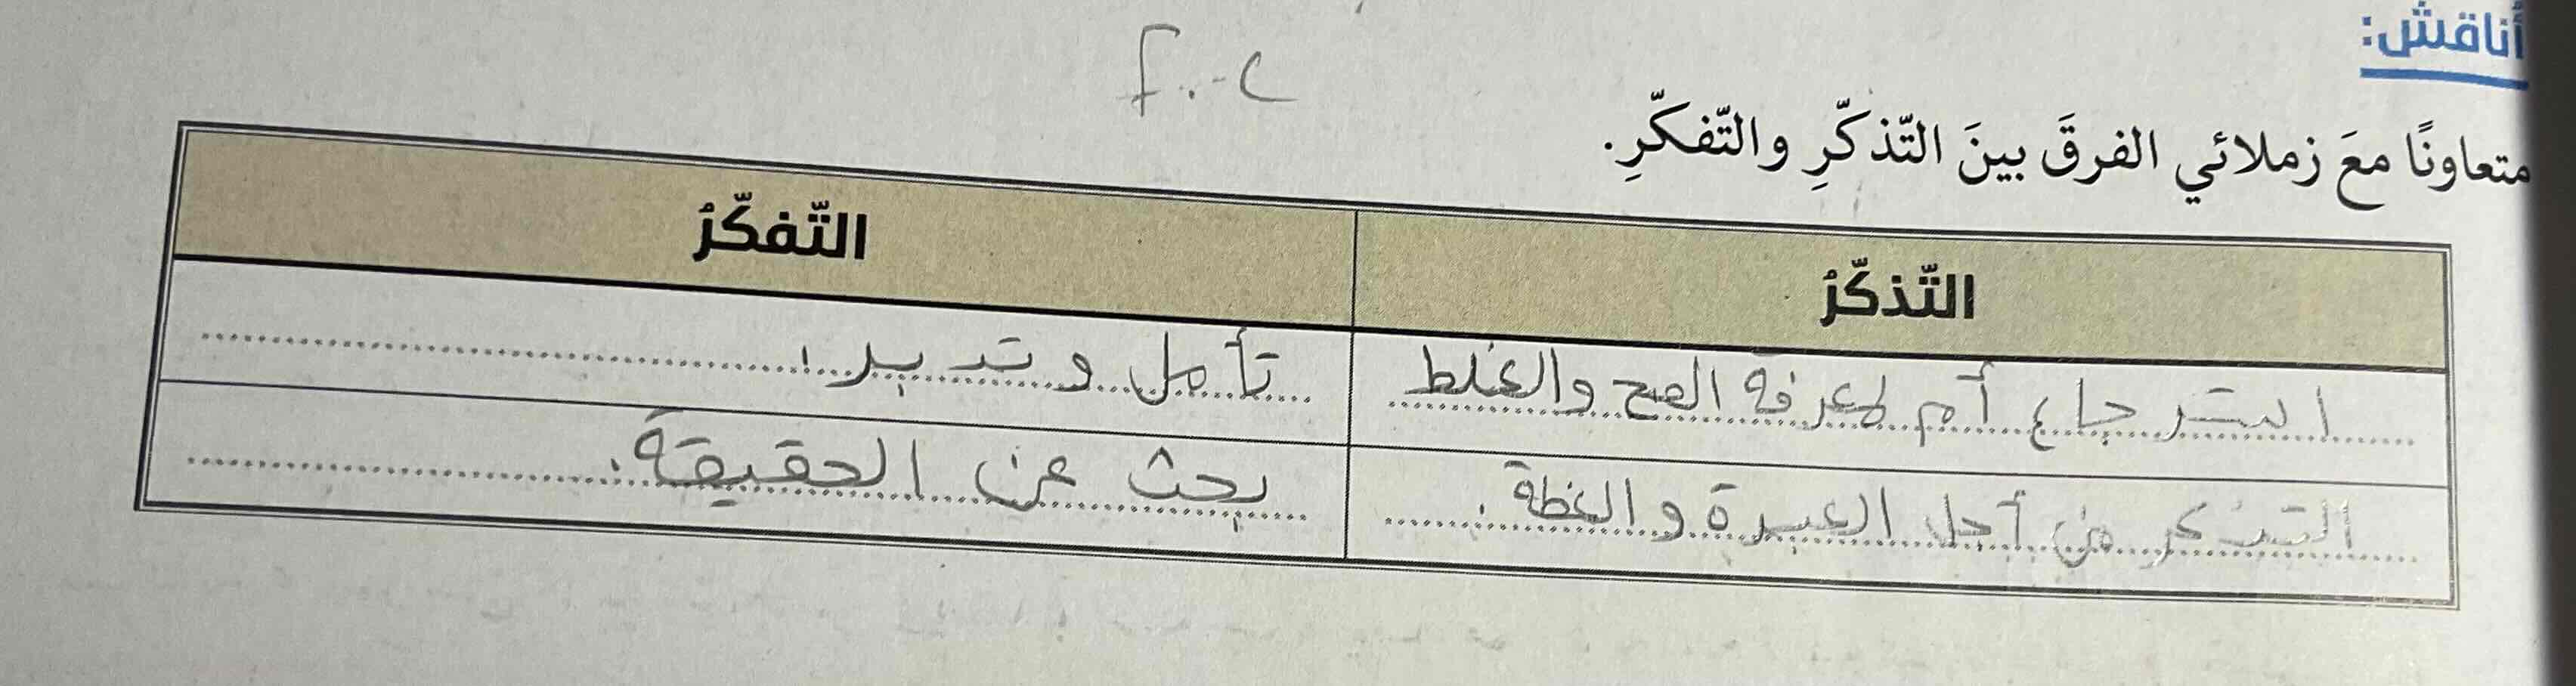 أناقش:
متعاونًا معَ زملائي الفرقَ بينَ التّذكّرِ والتّفكّرِ.
التّذكّرُ
التّفكّرُ
استرجاع أم لمعرفة الصح والغلط
تأمل وتدبر.
التذكر من أجل العبرة والغطة.
بحث عن الحقيقة.